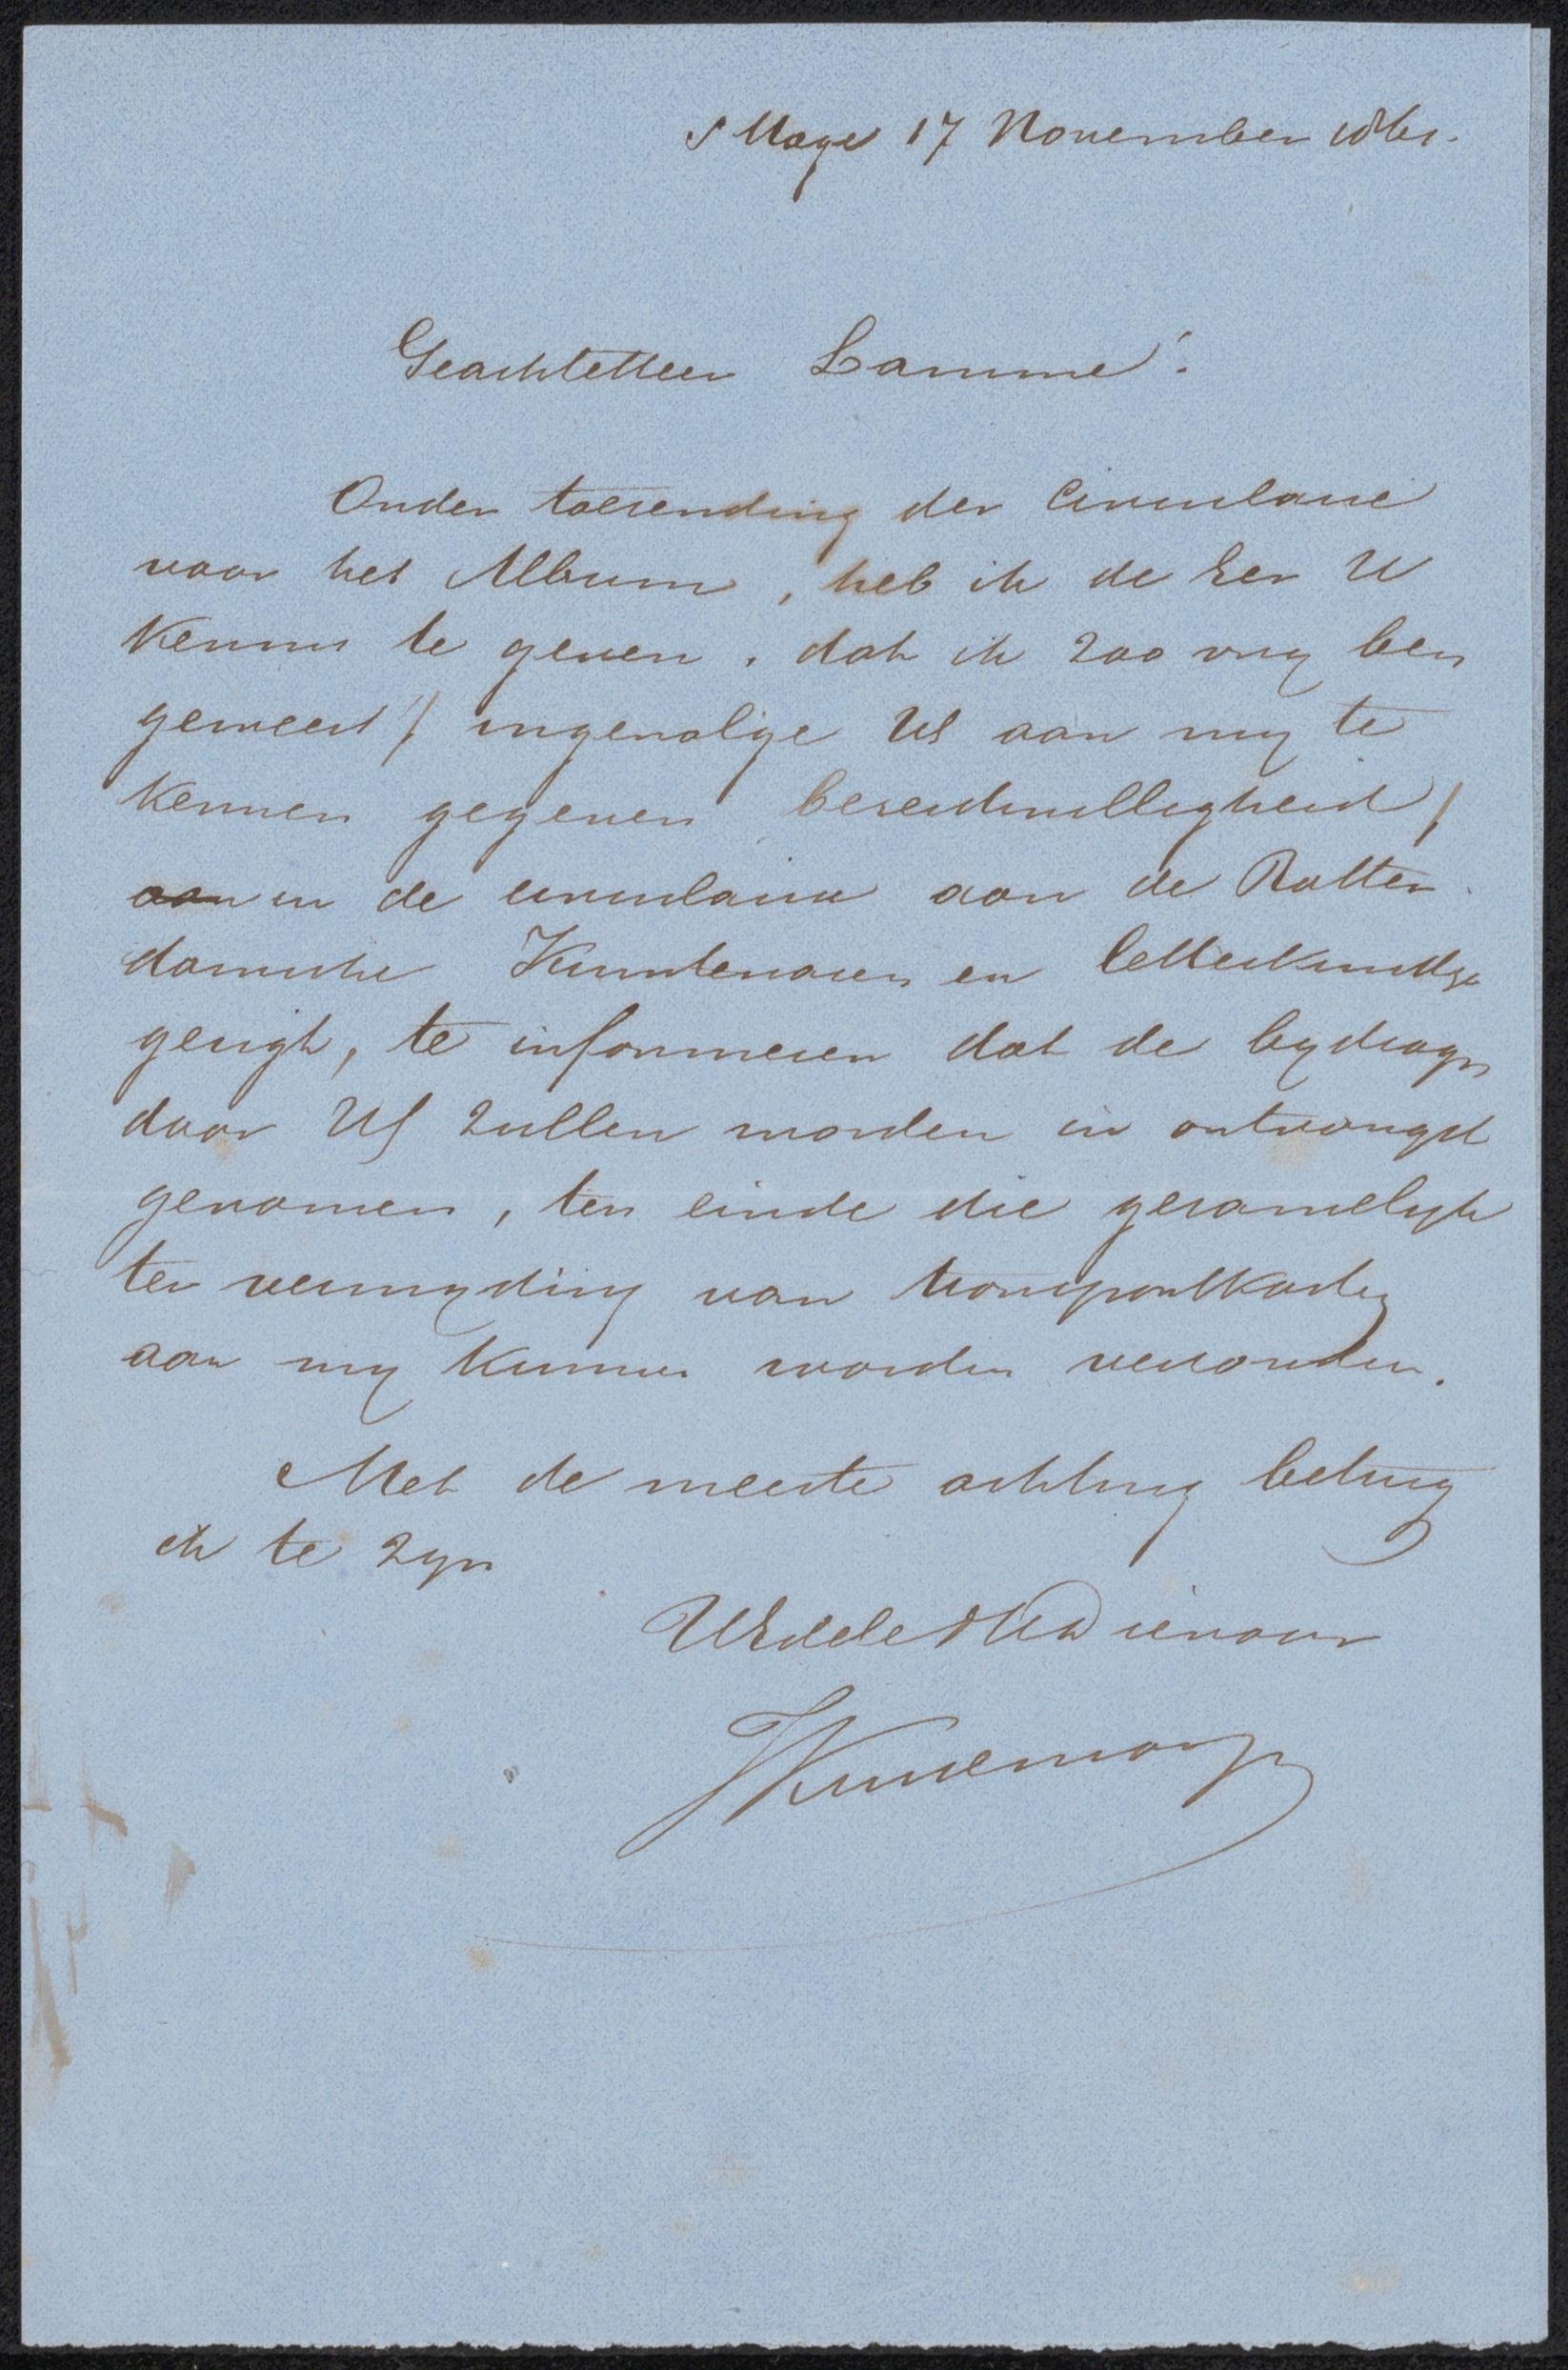 s Hage 17 November 1861.
Geachte Heer Lamme!
Onder toezending der Circulaire
voor het Album, heb ik de Eer U
kennis te geven, dat ik zoo vry ben
geweest / ingevolge Us aan my te
kennen gegeven bereidwilligheid /
aan in de circulaire aan de Rotter
damsche Kunstenaren en letterkundige
gerigt, te informeren dat de bydragen
door Us zullen worden in ontvangst
genomen, ten einde die gezamelyk
ter vermyding van transportkosten
aan my kunnen worden verzonden.
Met de meeste achting betuig
ik te zyn
UEdele DWDienaar